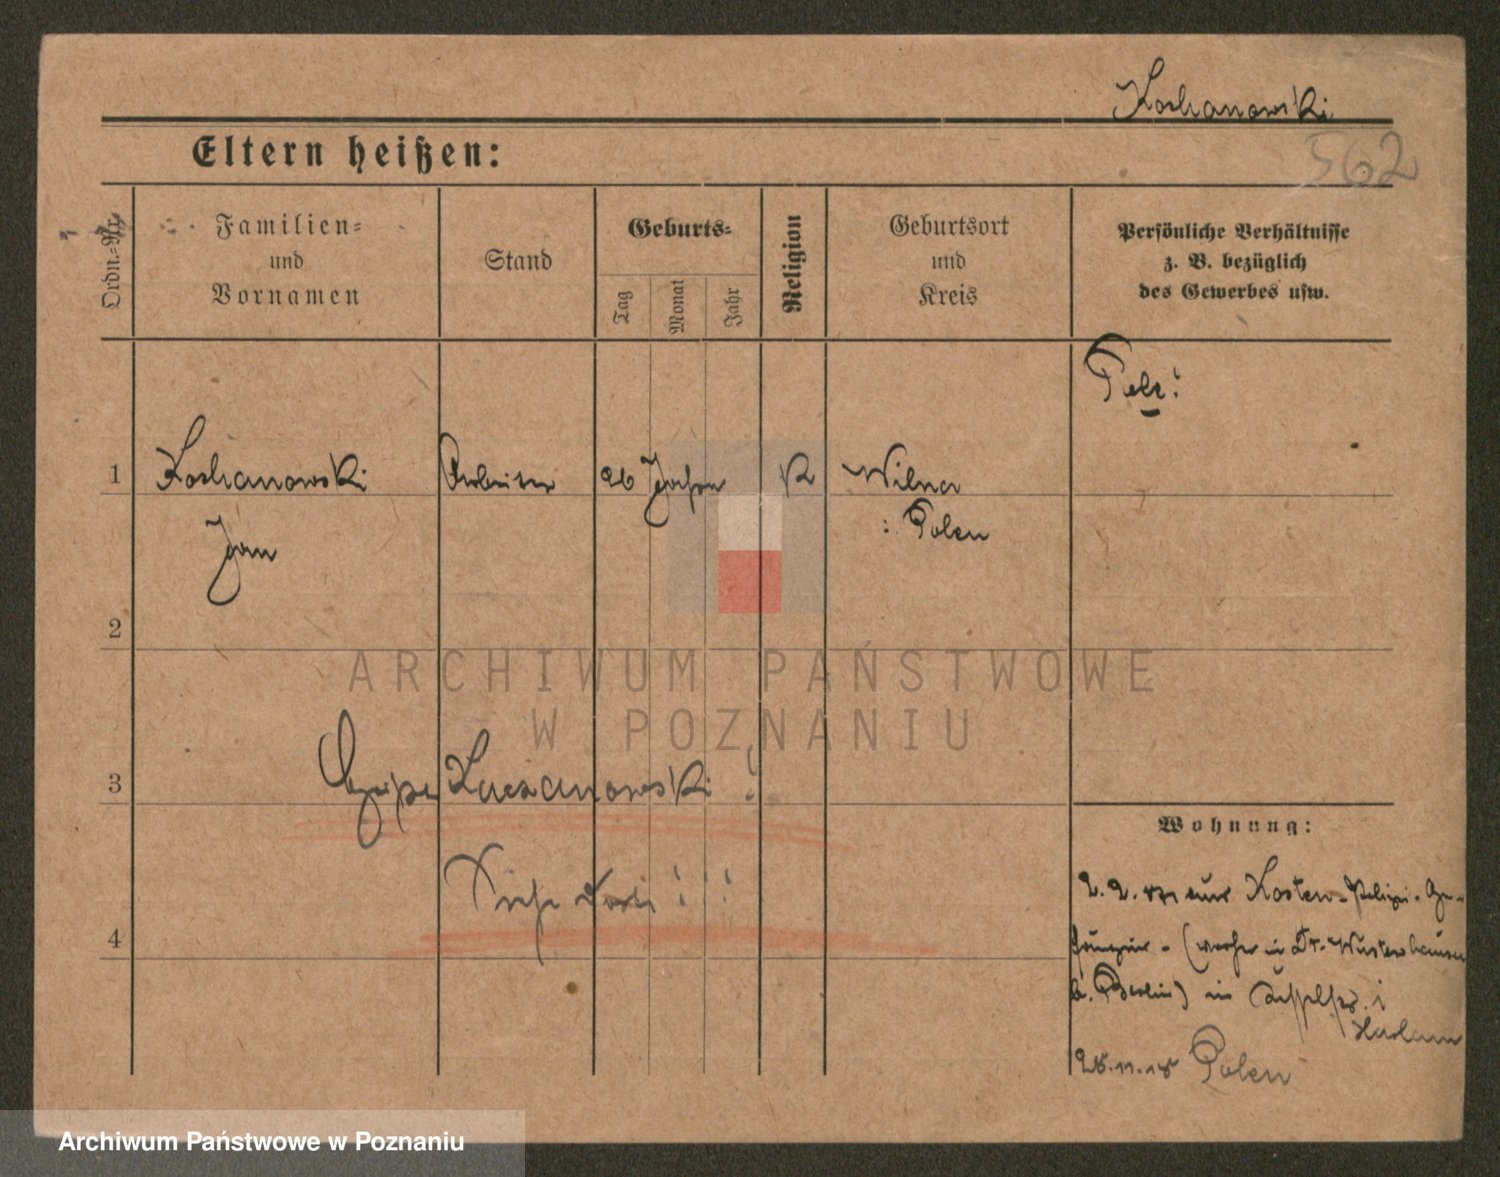 Kochanowski
562
Eltern heißen:
Ordn.-Nr.
Familien-
und
Vornamen
Stand
Geburts-
Tag
Monat
Jahr
Religion
Geburtsort
und
Kreis
Persönliche Verhältnisse
z. B. bezüglich
des Gewerbes usw.
1
Kochanowski
Jan
Arbeiter
26 Jahre
K
Wilna
: Polen
2
3
Kuczanowski !
Siehe dort ! ! !
4
Wohnung:
2. 2. aus Kosten - Polizei - Ge-
fängnis - (vorher in Dt. Wusterhausen
b. Berlin) in
28.11.18 Polen
ARCHIWUM PAŃSTWOWE
W POZNANIU
Archiwum Państwowe w Poznaniu